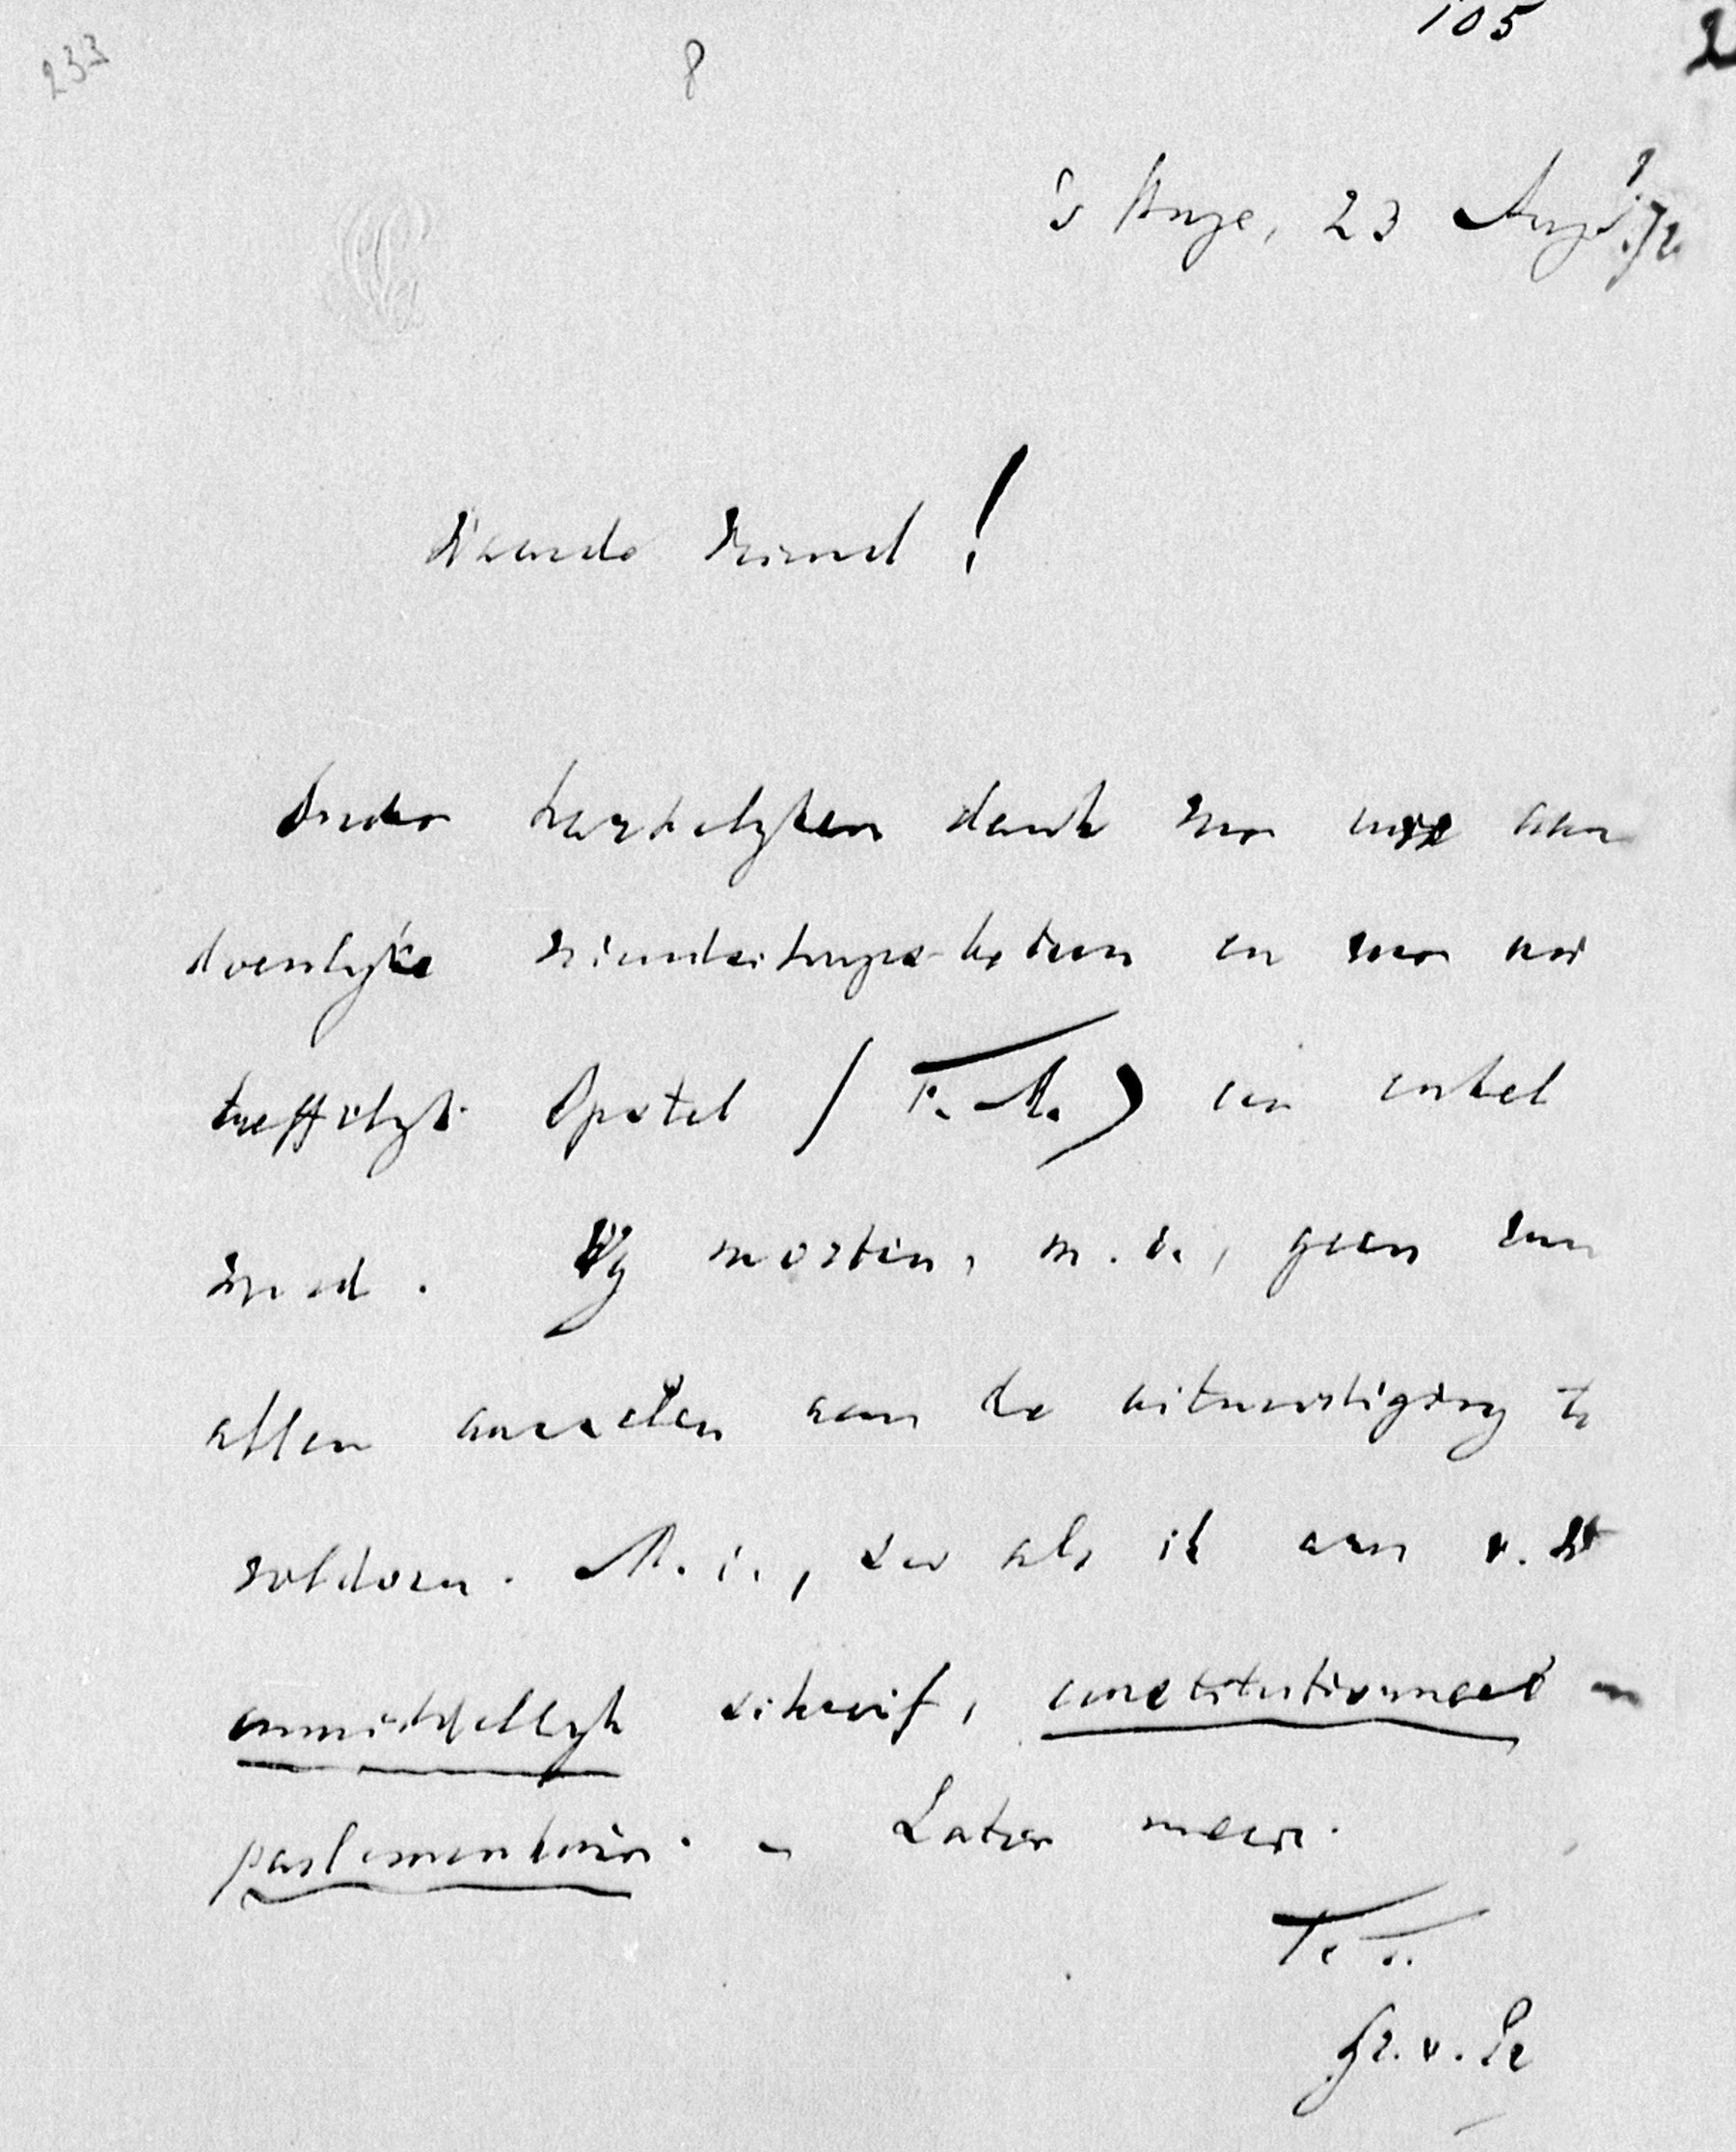 233 8 105 2
's Hage, 23 Aug. 72
Waarde Vriend!
Onder hartelyken dank voor uwe aan
doenlyke vriendschapsbetoon en voor uw
treffelyk Apostel (T. M.) een enkel
woord. Wy moeten, m. i., geen van
allen aan de uitnoodiging te
voldoen. M. i., zoo als ik aan v.
onmiddellyk schreif, constitutioneel en
parlementair. - Later meer.
T. t.
Gr. v. Pr